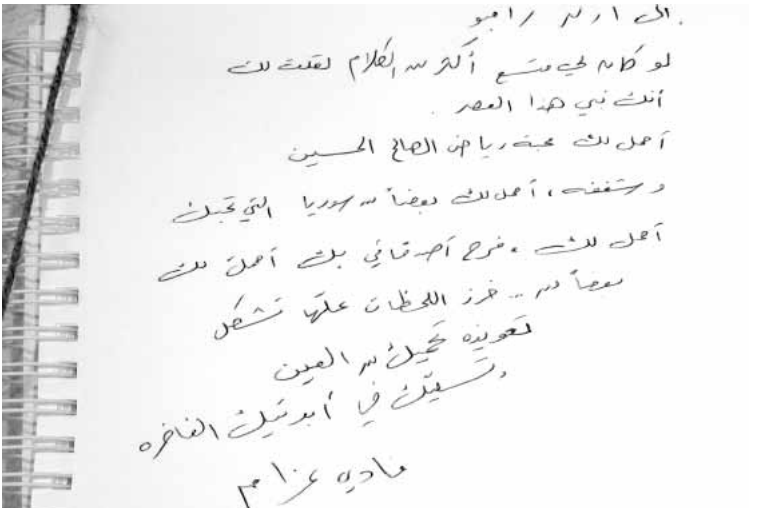 الى آرثر رامبو
لو كان لي متسع أكثر من الكلام لقلت لك
أنك نبي هذا العصر .
أحمل لك محبة رياض الصالح الحسين
وشغفه ، أحمل لك بعضاً من سوريا التي تحبك
أحمل لك ، فرح أصدقائي بك أحمل لك
بعضاً من .. خرز اللحظات علّها تشكل
تعويذه تحميك من العين
في أبديتك الفاخره
فادي عزام